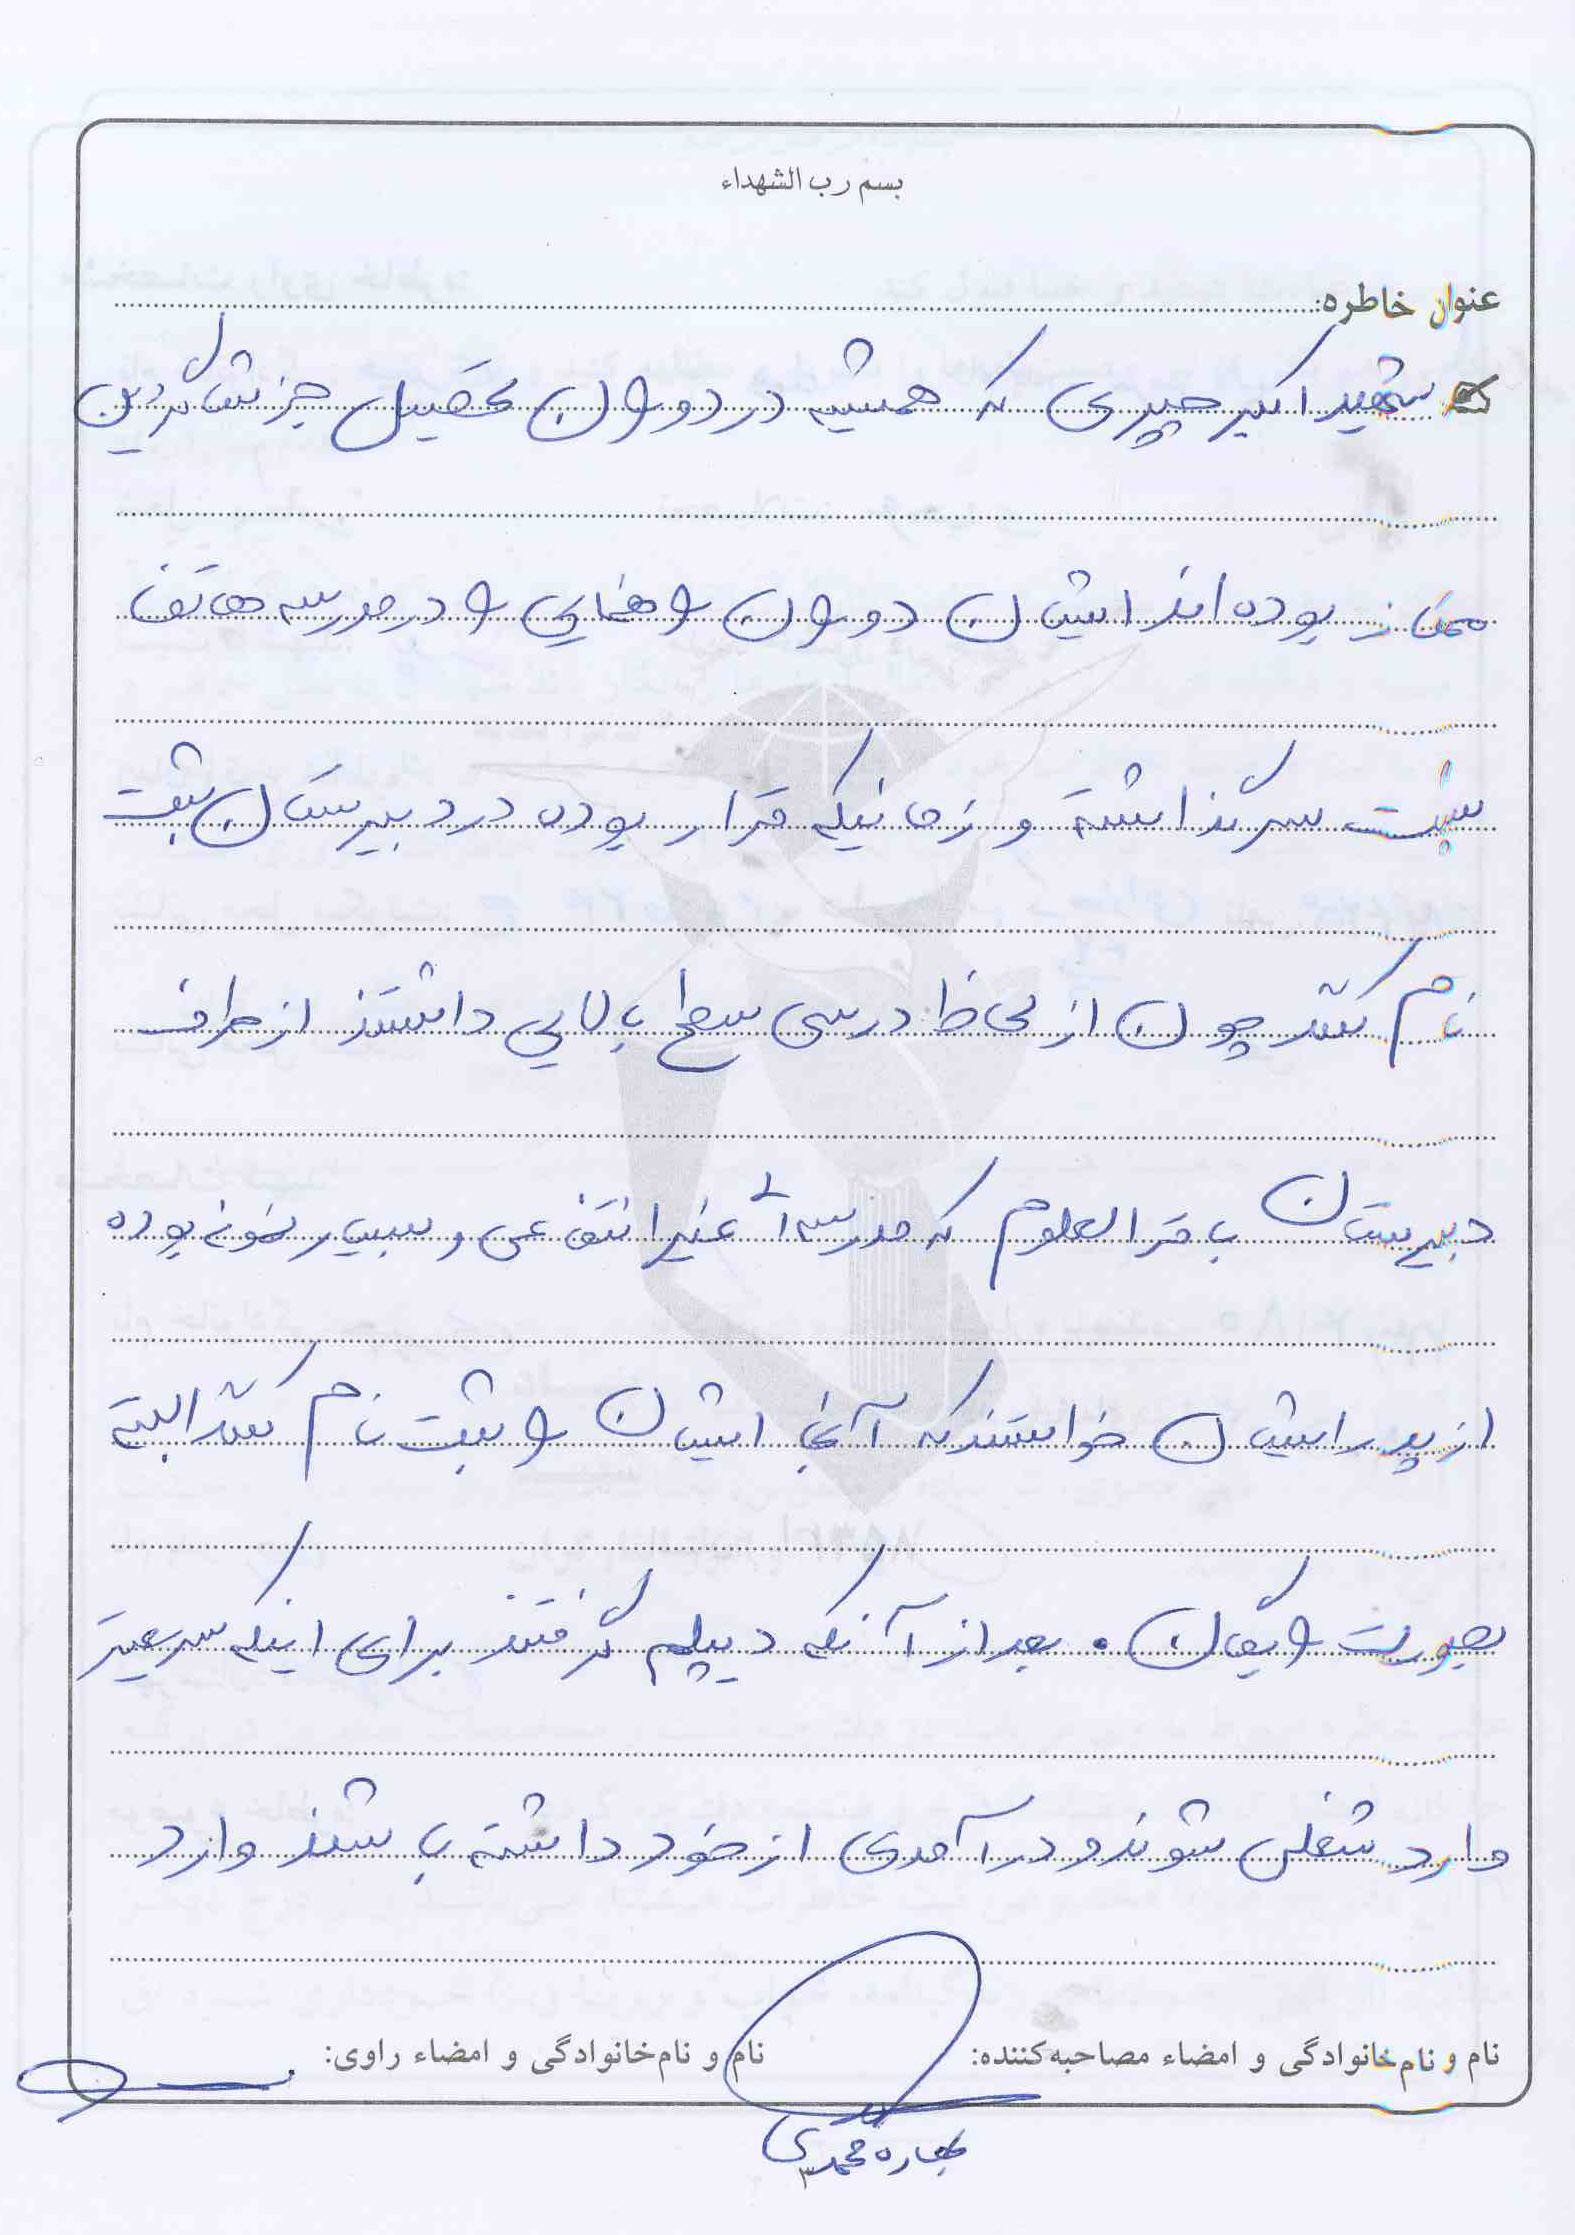 بسم رب الشهداء
عنوان خاطره:
شهید اکبر حیدری که همیشه در دوران تحصیل جز شاگردین
ممتاز بوده اند ایشان دوران راهنمایی را در مدرسه هاتف
پشت سر گذاشته و زمانیکه قرار بوده در دبیرستان ثبت
نام کنند چون از لحاظ درسی سطح بالایی داشتند از طرف
دبیرستان باقرالعلوم که مدرسه ای غیرانتفاعی و بسیار نمونه بوده
از پدر ایشان خواستند که آنجا ایشان را ثبت نام کنند البته
بصورت رایگان. بعد از آنکه دیپلم گرفتند برای اینکه سریعتر
وارد شغلی شوند و درآمدی از خود داشته باشند وارد
نام و نام‌خانوادگی و امضاء مصاحبه‌کننده: نام و نام‌خانوادگی و امضاء راوی:
بهاره محمدی
۳